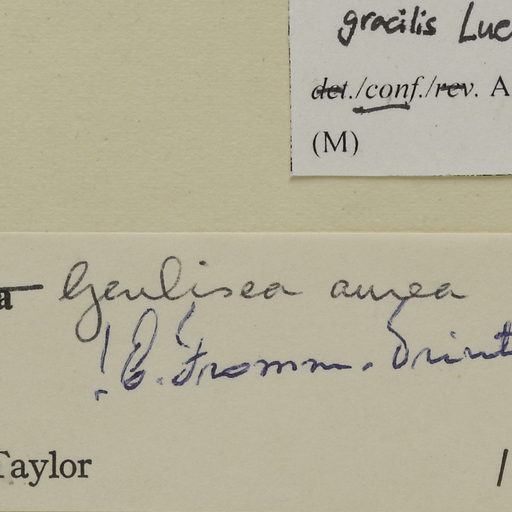 gracilis Lue
det./conf./rev. A
(M)
a Genlisea aurea
! E. Fromm-Trint
Taylor
1